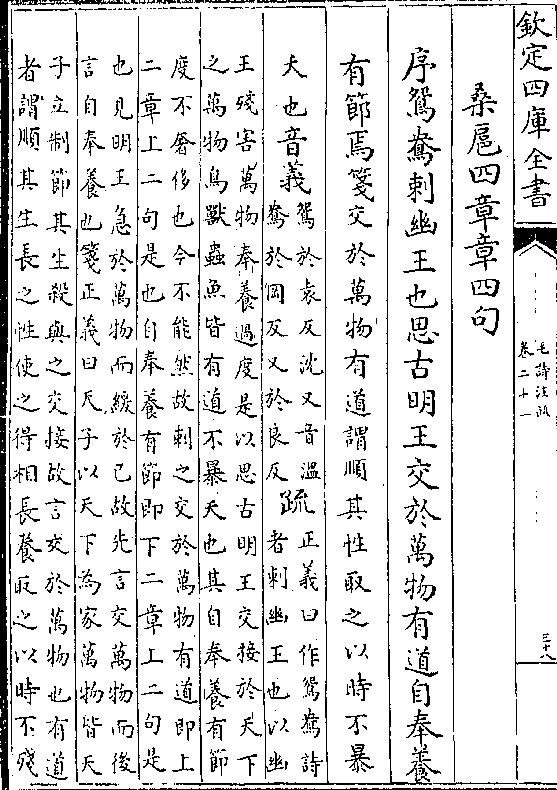 欽定四庫全書
毛詩注疏
卷二十一
三十八
桑扈四章章四句
序鴛鴦刺幽王也思古明王交於萬物有道自奉養
有節焉箋交於萬物有道謂順其性取之以時不暴
夭也音義鴛於袁反沈又音溫
鴦於岡反又於良反疏正義曰作鴛鴦詩
者刺幽王也以幽
王殘害萬物奉養過度是以思古明王交接於天下
之萬物鳥獸蟲魚皆有道不暴夭也其自奉養有節
度不奢侈也今不能然故刺之交於萬物有道即上
二章上二句是也自奉養有節即下二章上二句是
也見明王急於萬物而緩於已故先言交萬物而後
言自奉養也箋正義曰天子以天下為家萬物皆天
子立制節其生殺與之交接故言交於萬物也有道
者謂順其生長之性使之得相長養取之以時不殘